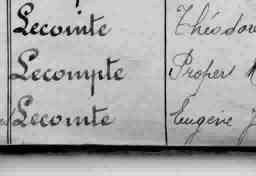 Lecointe Théodor
Lecompte Prosper
Lecomte Eugène J